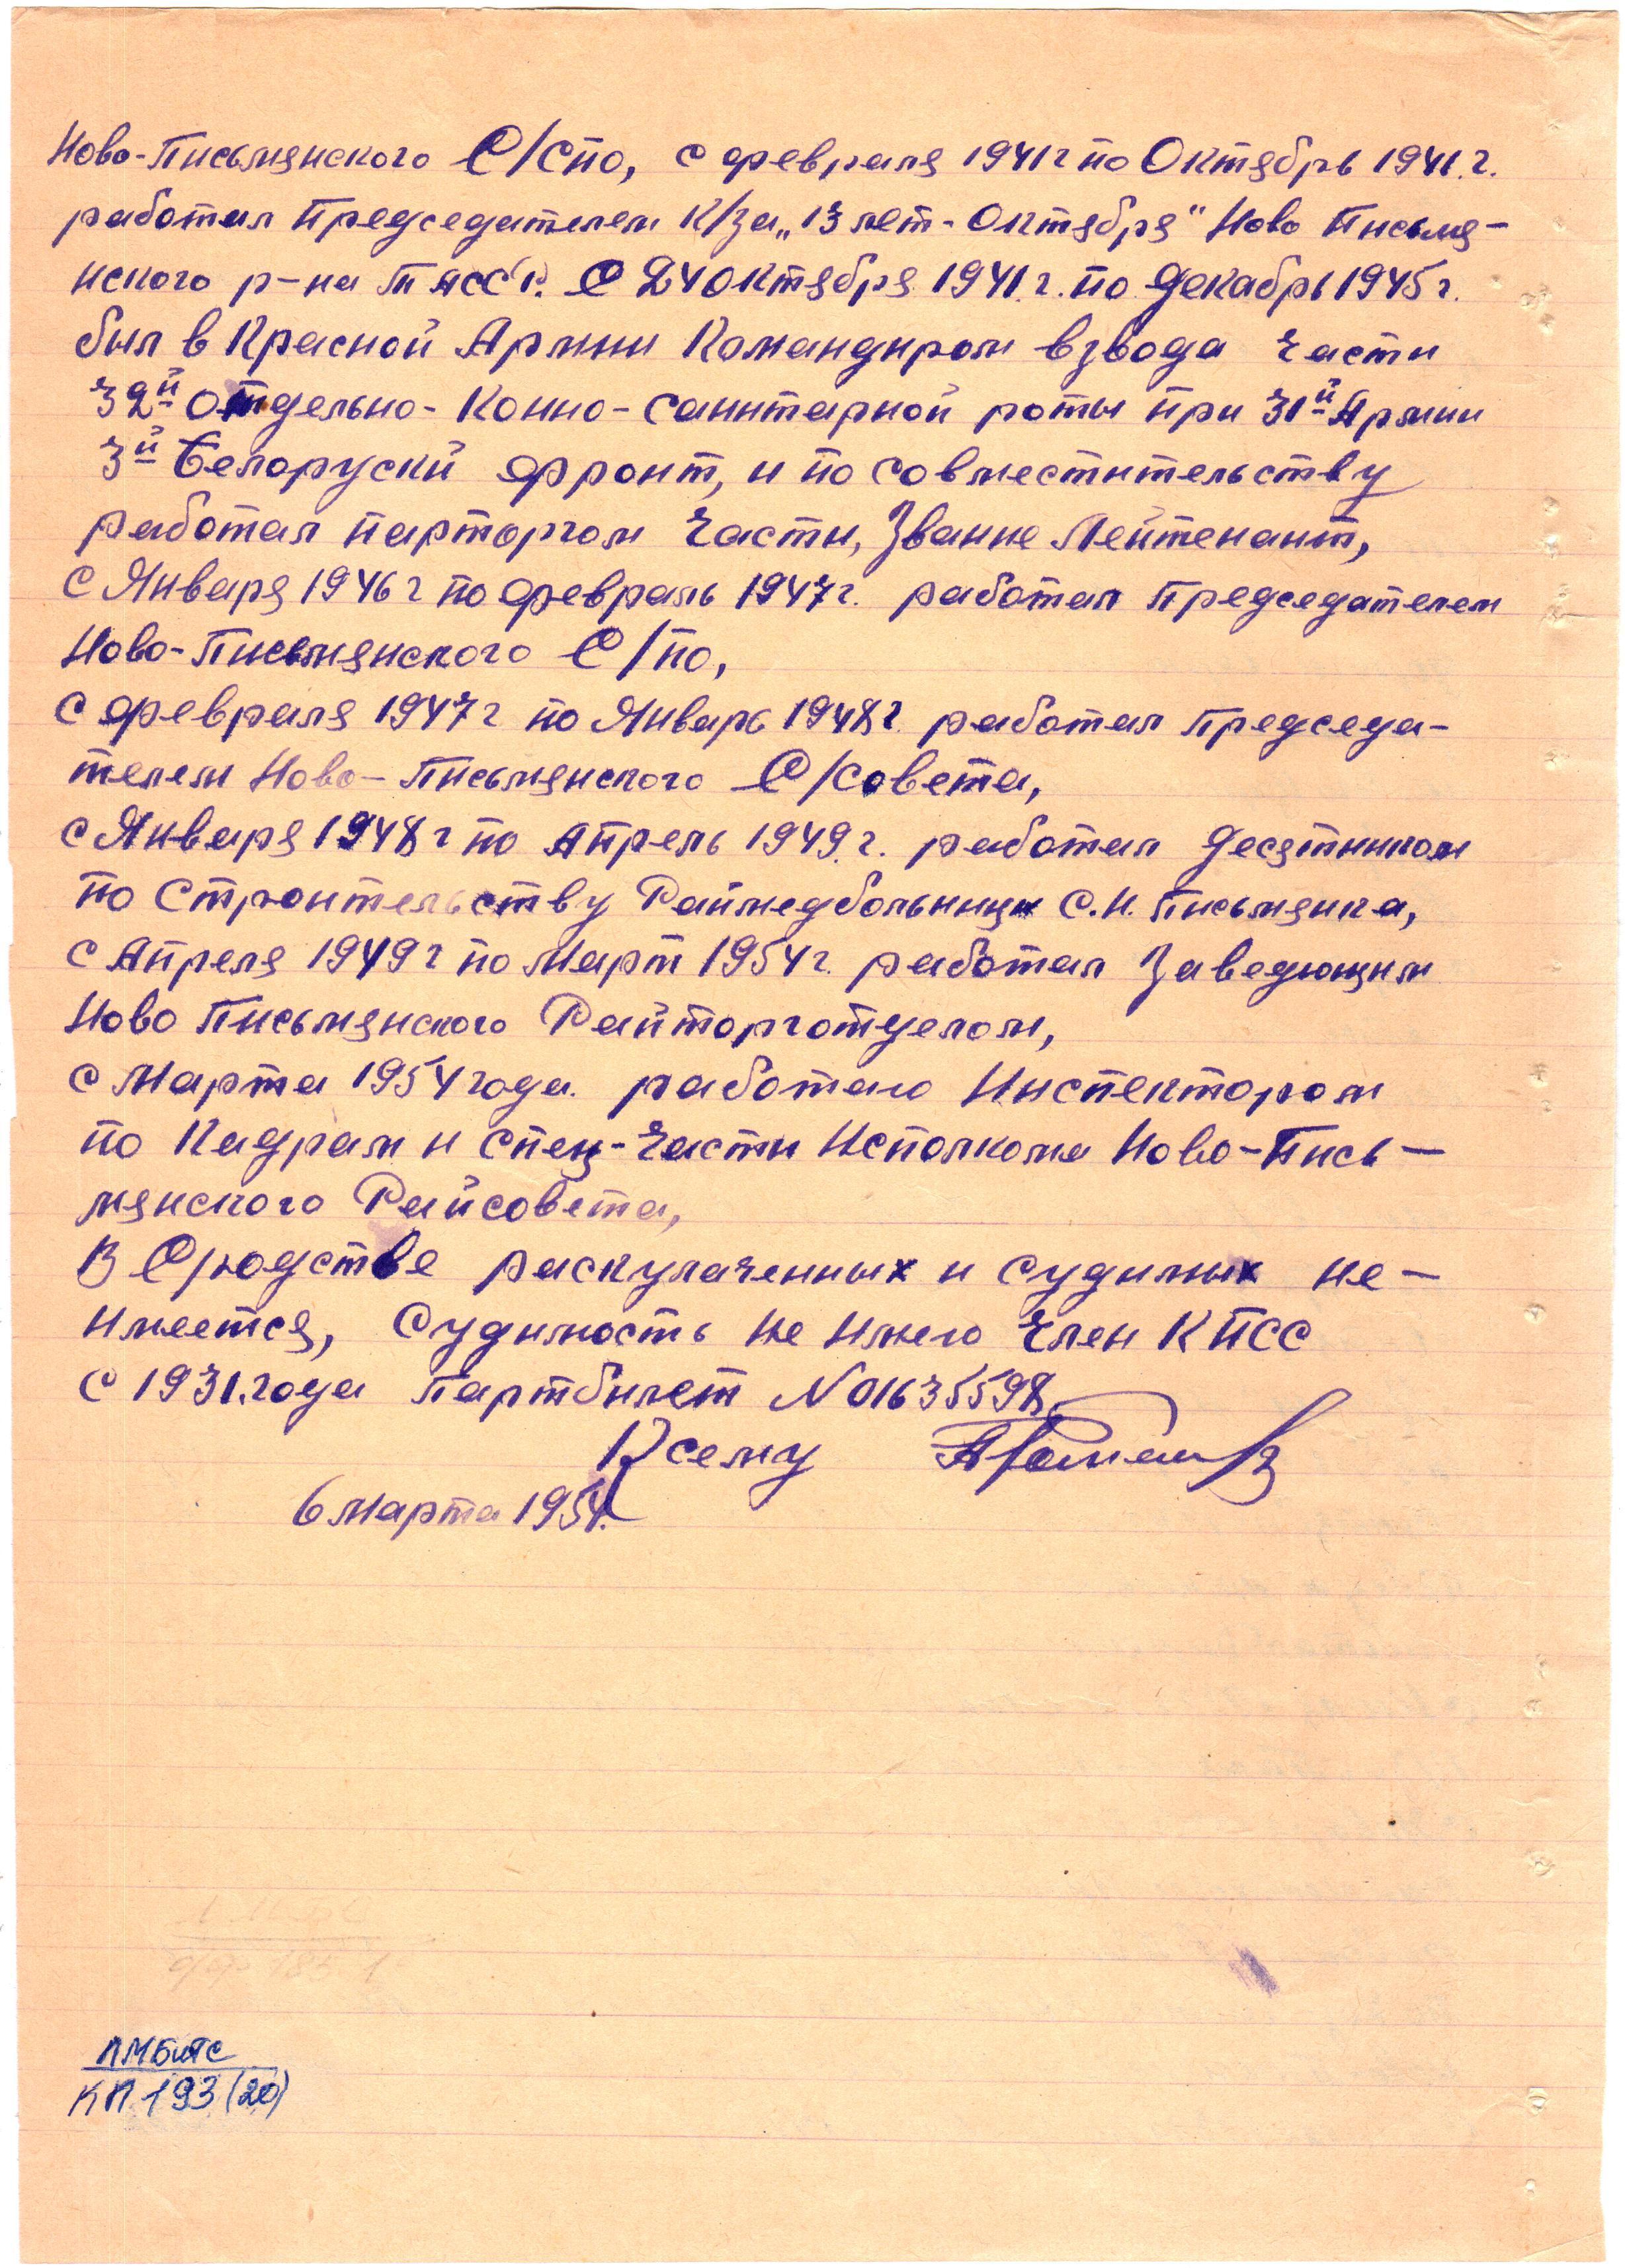 Ново-Письмянского С/Спо, с февраля 1941г по Октябрь 1941.г.
работал Председателем К/за „13 лет-Октября" Ново Письмя-
нского р-на ТАССР. С 24 Октября 1941.г. по Декабрь 1945г.
был в Красной Армии Командиром взвода части
32й Отдельно-Конно-Санитарной роты при 31й Армии
3й Белоруский фронт, и по совместительству
работал парторгом части, Звание Лейтенант,
с Января 1946г по февраль 1947г. работал Председателем
Ново-Письмянского С/по,
с февраля 1947г по Январь 1948г. работал Председа-
телем Ново-Письмянского С/совета,
с Января 1948г по Апрель 1949.г. работал десятником
по Строительству Раймедбольницы С.Н. Письмянка,
с Апреля 1949г по Март 1954г. работал Заведющим
Ново Письмянского Райторготделом,
с Марта 1954года. работаю Инспектором
по Кадрам и спец-части Исполкома Ново-Пись-
мянского Райсовета,
В Сродстве раскулаченных и судимых не-
имеется, Судимость не имею Член КПСС
с 1931.года Партбилет №01635598,
К сему
6 марта 1954г.
ЛМБиТС
КП 193 (20)